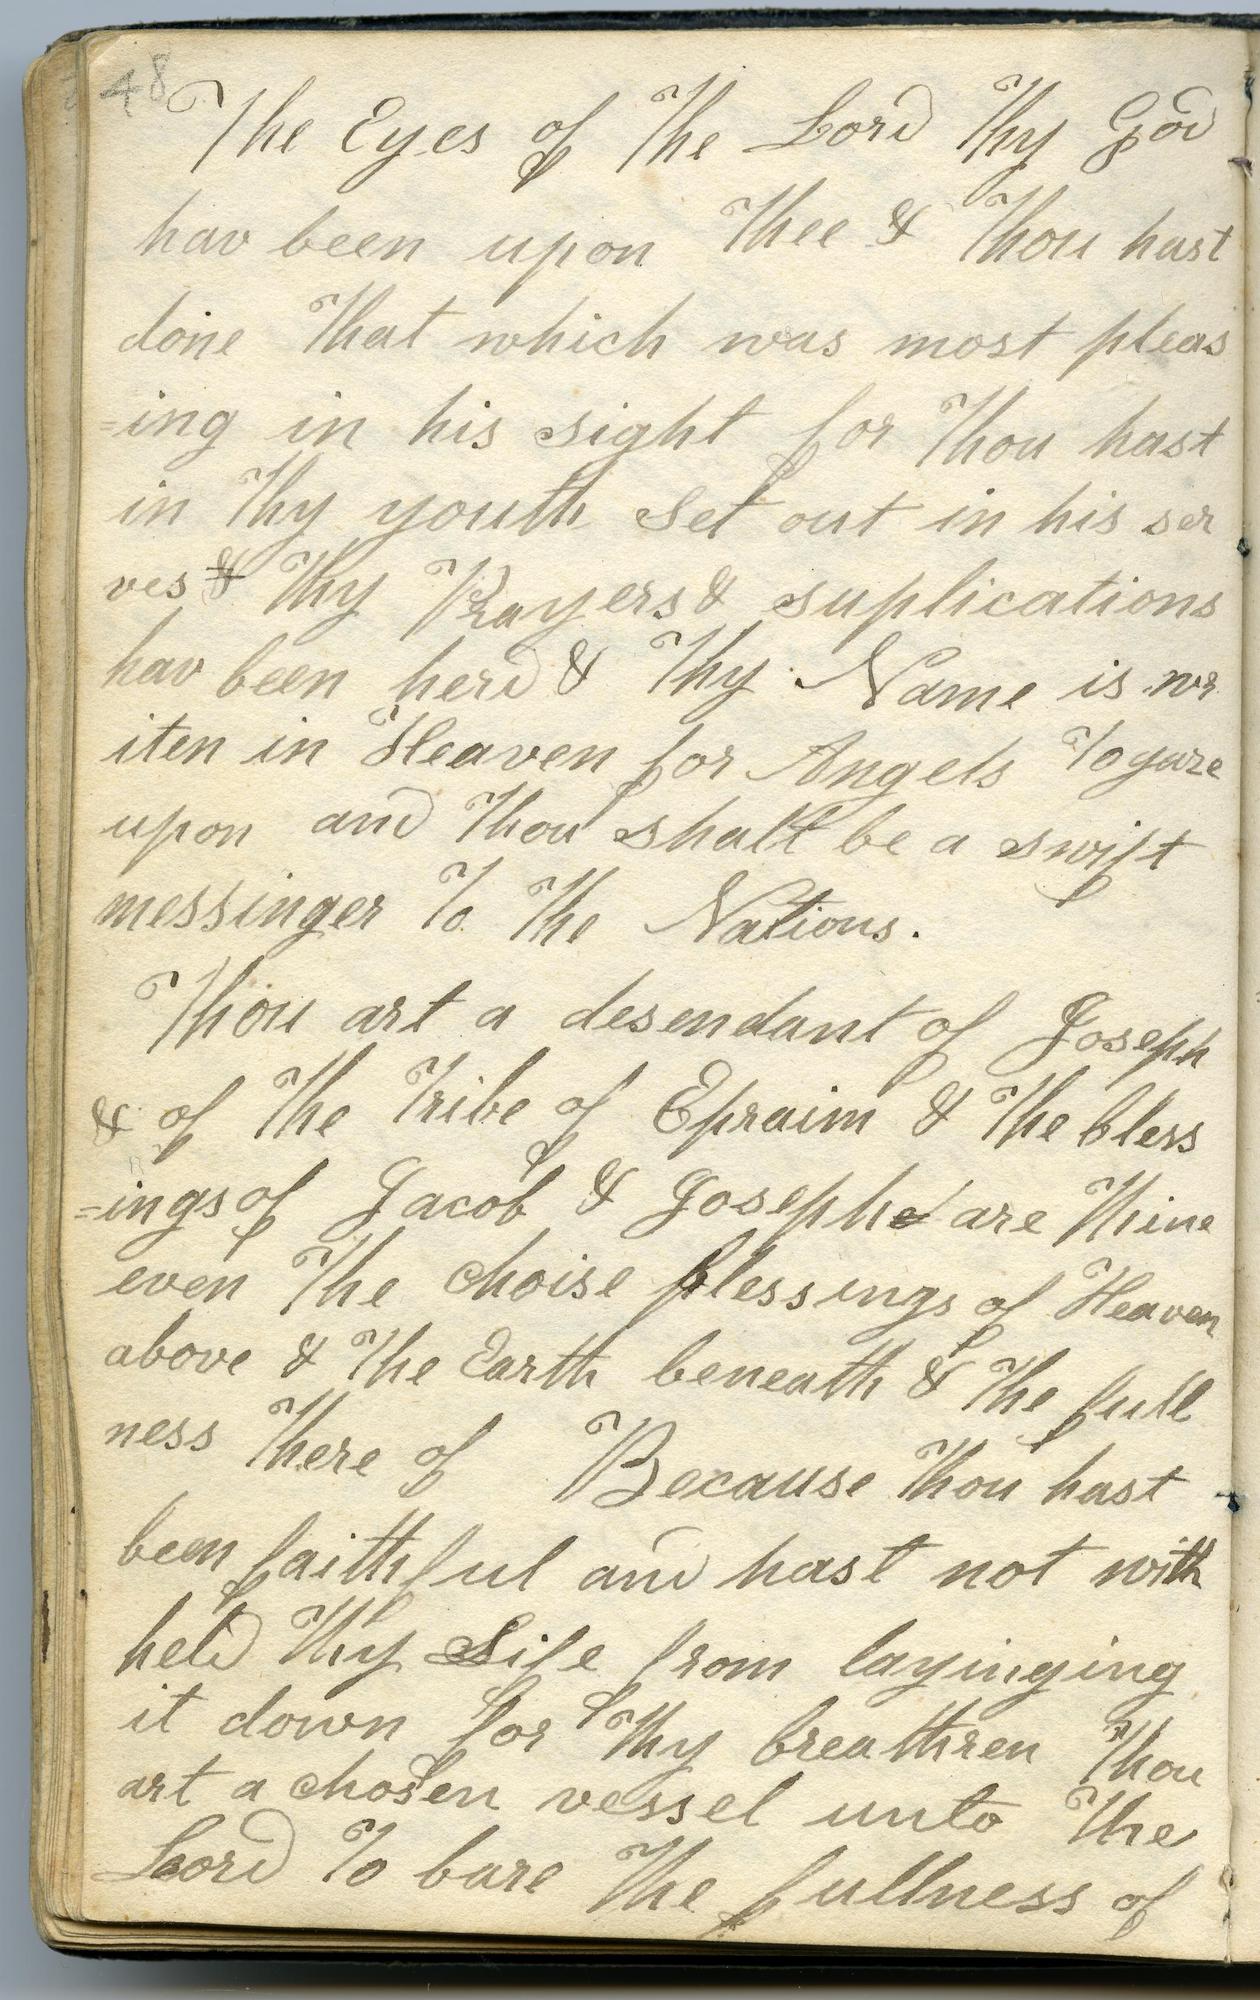 48
The Eyes of The Lord Thy God
hav been upon Thee & Thou hast
done That which was most pleas
=ing in his sight for Thou hast
in Thy youth set out in his ser
ves & Thy Prayers & suplications
hav been herd & Thy Name is wr
iten in Heaven for Angels To gaze
upon and Thou shalt be a swift
messinger To The Nations.
Thou art a desendant of Joseph
& of The Tribe of Epraim & The bless
=ings of Jacob & Joseph are Thine
even The choise blessings of Heaven
above & The Earth beneath & The full
ness There of Because Thou hast
been faithful and hast not with
held Thy Life from layinging
it down for Thy breathren Thou
art a chosen vessel unto The
Lord To bare The fullness of